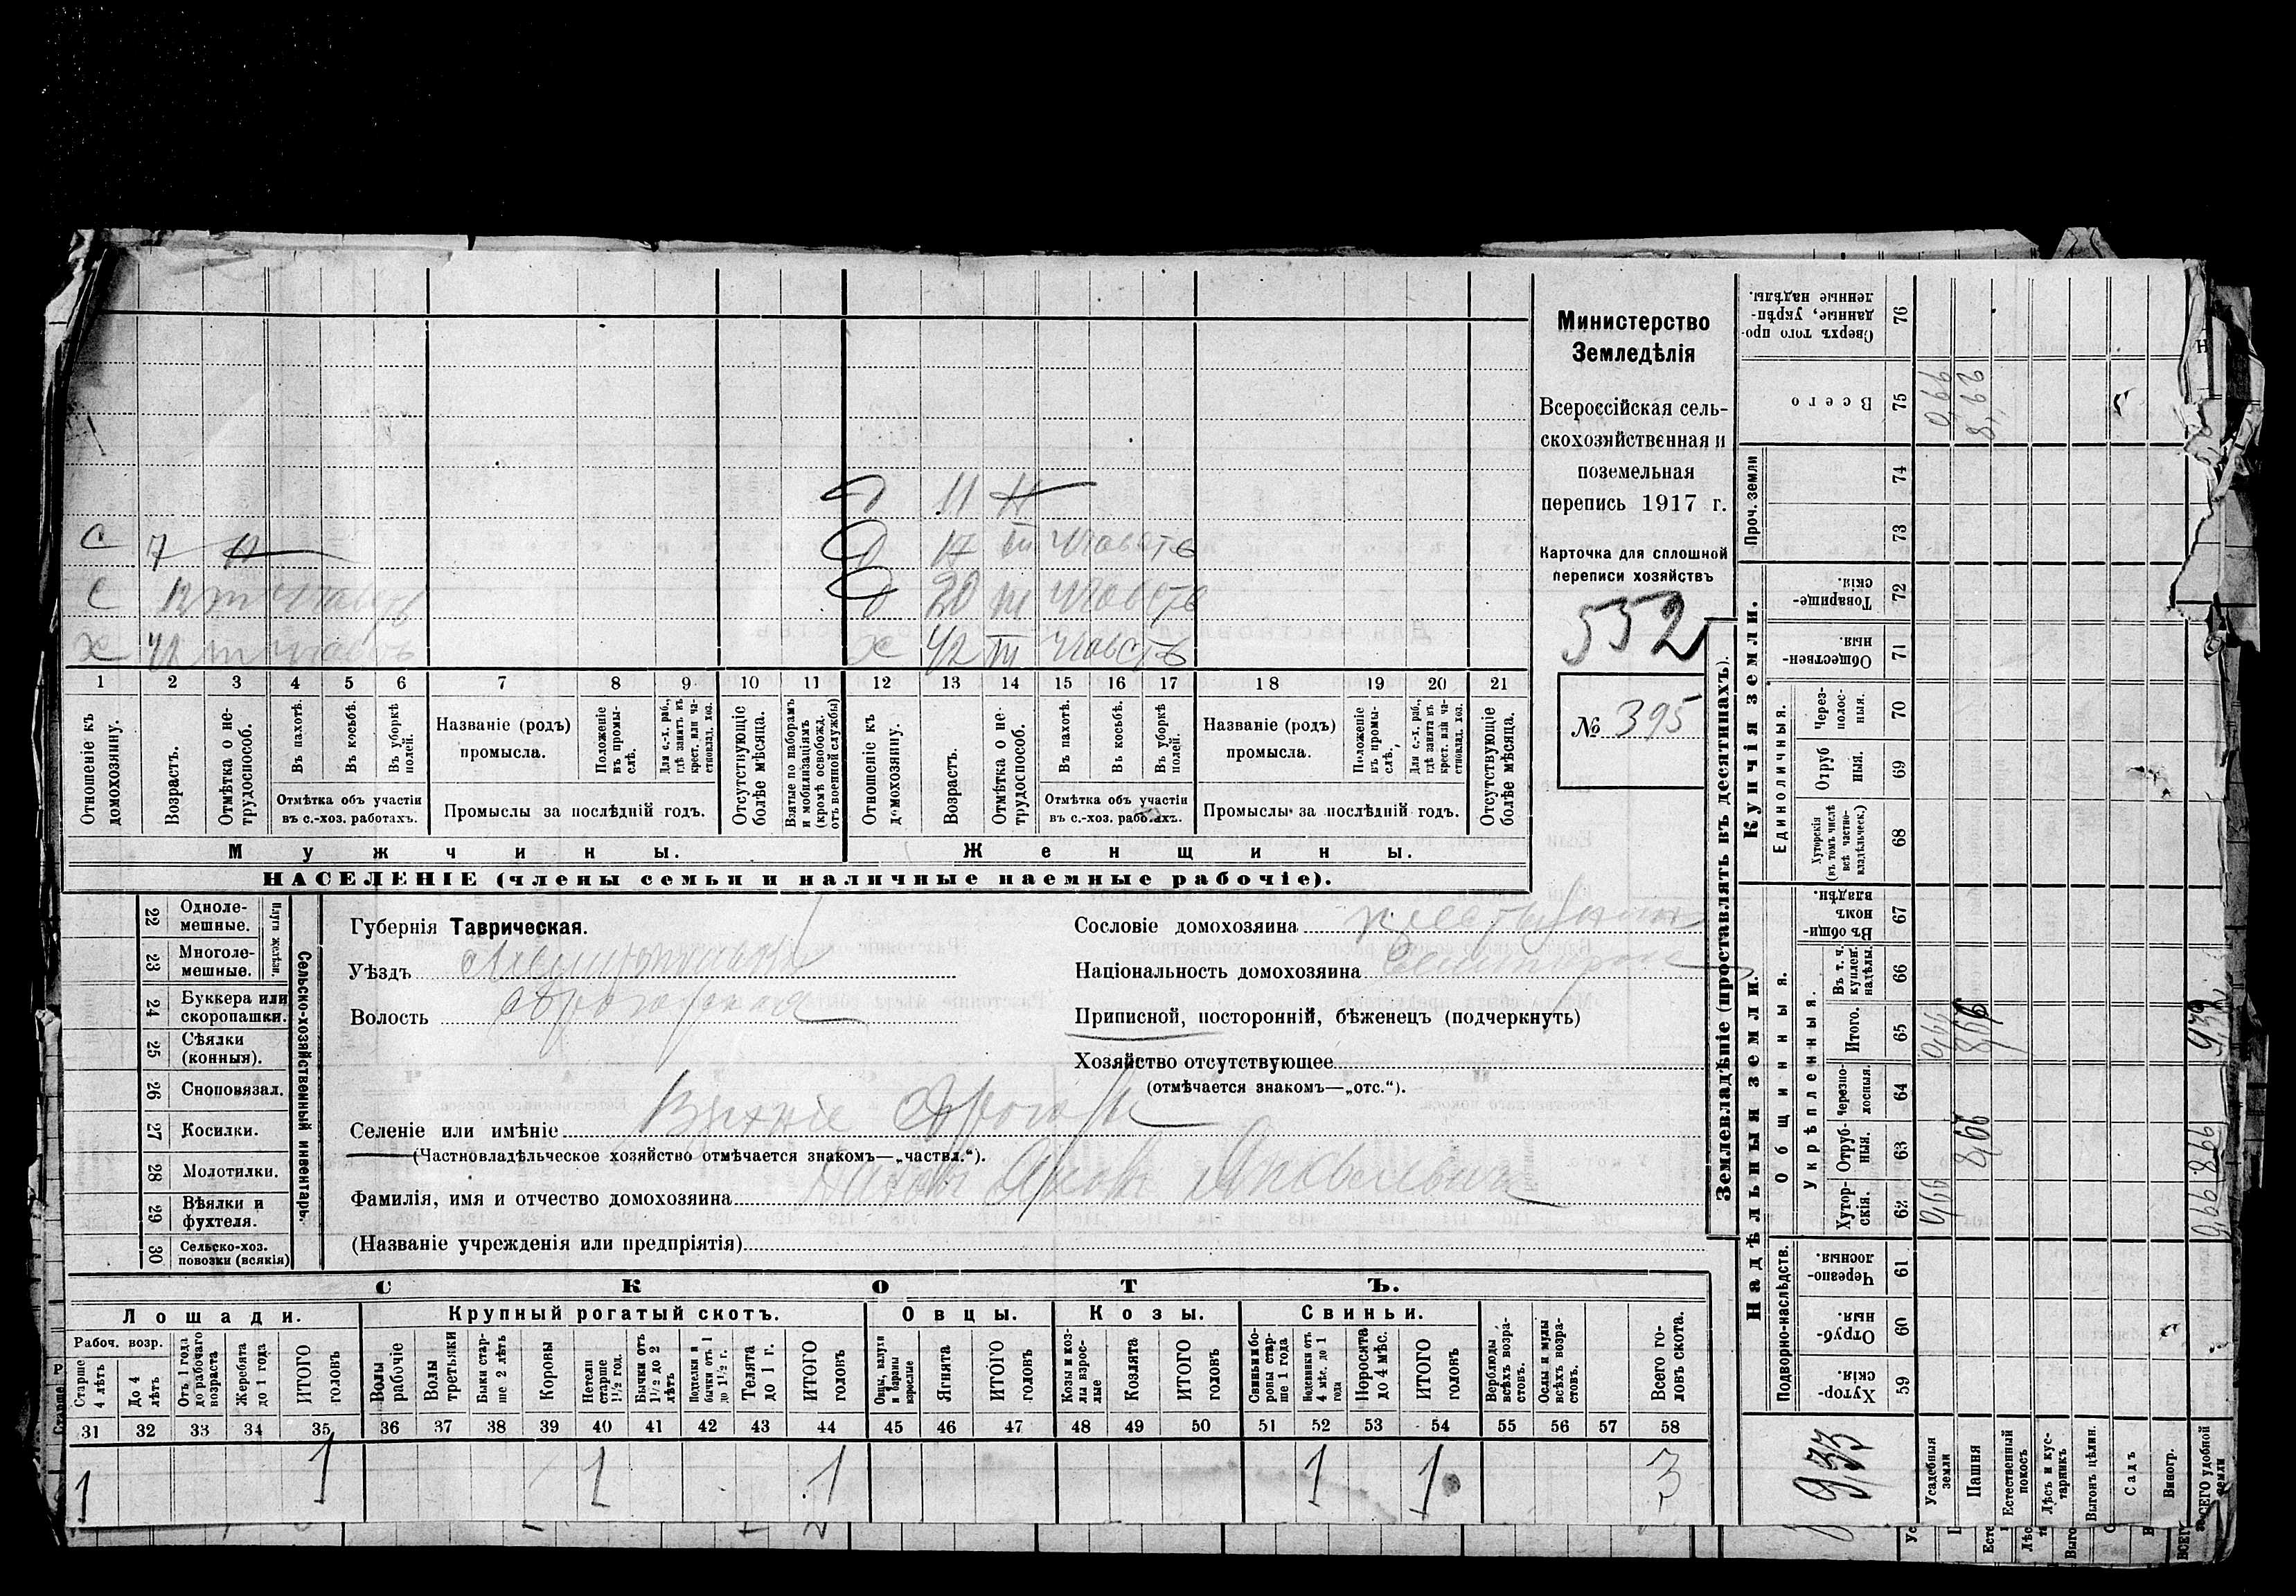 С 7 Н
С 12 III участв
Х 42 III участв
Д 11 Н
Д 17 III участв
Д 20 III участв
Х 42 III участв
1 2 3 4 5 6 7 8 9 10 11 12 13 14 15 16 17 18 19 20 21
Отношеніе къ домохозяину.
Возрастъ.
Отмѣтка о нетрудоспособ.
Въ пахотѣ.
Въ косьбѣ.
Въ уборкѣ полей.
Отмѣтка объ участіи
въ с.-хоз. работахъ.
Названіе (родъ)
промысла.
Положеніе въ промыслѣ.
Для с.-х. раб., гдѣ занятъ въ крест. или частновлад. хоз.
Промыслы за послѣдній годъ.
Отсутствующіе болѣе мѣсяца.
Взятые по наборамъ и мобилизаціямъ (кромѣ освобожд. отъ военной службы)
Отношеніе къ домохозяину.
Возрастъ.
Отмѣтка о нетрудоспособ.
Въ пахотѣ.
Въ косьбѣ.
Въ уборкѣ полей.
Отмѣтка объ участіи
въ с.-хоз. работахъ.
Названіе (родъ)
промысла.
Положеніе въ промыслѣ.
Для с.-х. раб., гдѣ занята въ крест. или частновлад. хоз.
Промыслы за послѣдній годъ.
Отсутствующіе болѣе мѣсяца.
Мужчины.
Женщины.
НАСЕЛЕНІЕ (члены семьи и наличные наемные рабочіе).
Министерство
Земледѣлія
Всероссійская сель-
скохозяйственная и
поземельная
перепись 1917 г.
Карточка для сплошной
переписи хозяйствъ
552
№ 395
22 Однолемешные.
23 Многолемешные.
Плуги желѣзн.
24 Буккера или скоропашки.
25 Сѣялки (конныя).
26 Сноповязал.
27 Косилки.
28 Молотилки.
29 Вѣялки и фухтеля.
30 Сельско-хоз. повозки (всякія)
Сельско-хозяйственный инвентарь.
Губернія Таврическая.
Уѣздъ
Волость
Селеніе или имѣніе Верхніе
(Частновладѣльческое хозяйство отмѣчается знакомъ—„частвл.“).
Фамилія, имя и отчество домохозяина Яковъ
(Названіе учрежденія или предпріятія)
Сословіе домохозяина
Національность домохозяина
Приписной, посторонній, бѣженецъ (подчеркнуть)
Хозяйство отсутствующее
(отмѣчается знакомъ—„отс.“).
СКОТЪ.
Лошади.
Крупный рогатый скотъ.
Овцы.
Козы.
Свиньи.
Рабоч. возр.
Старше 4 лѣтъ
До 4 лѣтъ
Отъ 1 года до рабочаго возраста
Жеребята до 1 года
ИТОГО головъ
Волы рабочіе
Волы третьяки
Быки старше 2 лѣтъ
Коровы
Нетели старше 1½ год.
Бычки отъ 1½ до 2 лѣтъ
Подтелки и бычки отъ 1 до 1½ г.
Телята до 1 г.
ИТОГО головъ
Овцы, валухи и бараны взрослые
Ягнята
ИТОГО головъ
Козы и козлы взрослые
Козлята
ИТОГО головъ
Свиньи и боровы старше 1 года
Подсвинки отъ 4 мѣс. до 1 года
Поросята до 4 мѣс.
ИТОГО головъ
Верблюды всѣхъ возрастовъ.
Ослы и мулы всѣхъ возрастовъ.
Всего головъ скота.
31 32 33 34 35 36 37 38 39 40 41 42 43 44 45 46 47 48 49 50 51 52 53 54 55 56 57 58
1 1 1 1 1 1 3
Землевладѣніе (проставлять въ десятинахъ).
Надѣльныя земли.
Купчія земли.
Проч. земли
Подворно-наслѣдств.
Общинныя.
Укрѣпленныя.
Единоличныя.
Хуторскія. 59
Отрубныя. 60
Черезполосныя. 61
Хуторскія. 62
Отрубныя. 63
Черезполосныя. 64
Итого. 65
Въ т. ч. куплен. надѣлы. 66
Въ общинномъ владѣн. 67
Хуторскія (въ томъ числѣ всѣ частновладѣльческ.) 68
Отрубныя. 69
Черезполосныя. 70
Общественныя. 71
Товарищескія. 72
73
74
Всего 75
Сверхъ того проданные, укрѣпленные надѣлы. 76
933
Усадебныя земли 0,66 0,66 0,66
Пашня 8,66 8,66
Естественный покосъ
Лѣсъ и кустарникъ
Выгонъ цѣлин.
Садъ
Виногр.
ВСЕГО удобной земли 0,66 8,66